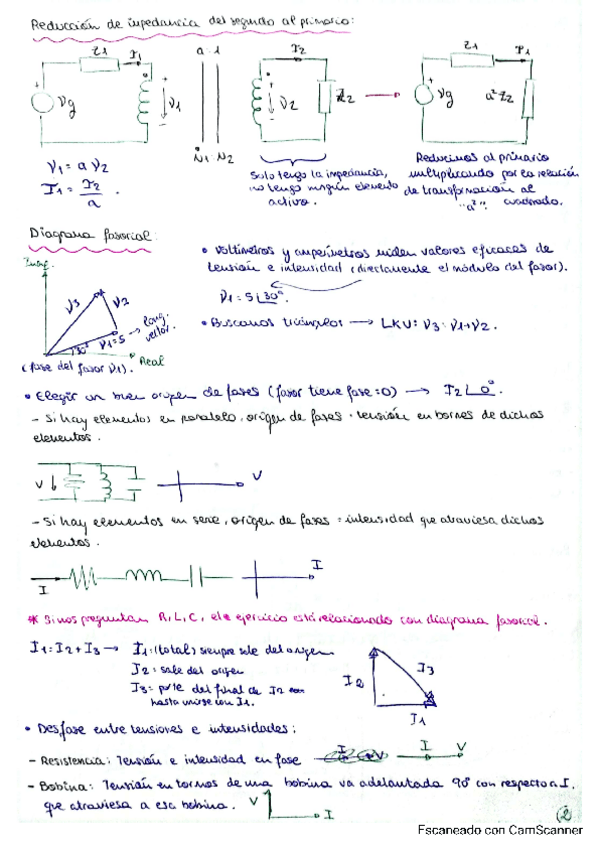 Reducción de impedancia del segundo al primario:
Z1 I1 a 1 I2 Z1 I1
Vg V1 V2 Z2 Vg a²Z2
N1 : N2
V1 = a V2
I1 = I2/a .
Solo tengo la impedancia, no tengo ningún elemento activo.
Reducimos al primario multiplicando por la relación de transformación al "a²" cuadrado.
Diagrama fasorial:
• Voltímetros y amperímetros miden valores eficaces de
tensión e intensidad (directamente el módulo del fasor).
V1 = 5∟30°.
• Buscamos triángulos → LKV: V3 = V1+V2.
V3 V2
V1=5 → long. vector.
30° Real
(fase del fasor V1).
• Elegir un buen origen de fases (fasor tiene fase=0) → I2∟0°.
- Si hay elementos en paralelo, origen de fases = tensión en bornes de dichos
elementos.
V V
- Si hay elementos en serie, origen de fases = intensidad que atraviesa dichos
elementos.
I I
* Si nos preguntan R, L, C, el ejercicio está relacionado con diagrama fasorial.
I1 = I2 + I3 → I1: (total) siempre sale del origen
I2: sale del origen
I3: parte del final de I2
hasta unirse con I1.
I2 I3
I1
• Desfase entre tensiones e intensidades:
- Resistencia: Tensión e intensidad en fase I V
- Bobina: Tensión en tornos de una bobina va adelantada 90° con respecto a I
que atraviesa a esa bobina. V I
(2)
Escaneado con CamScanner